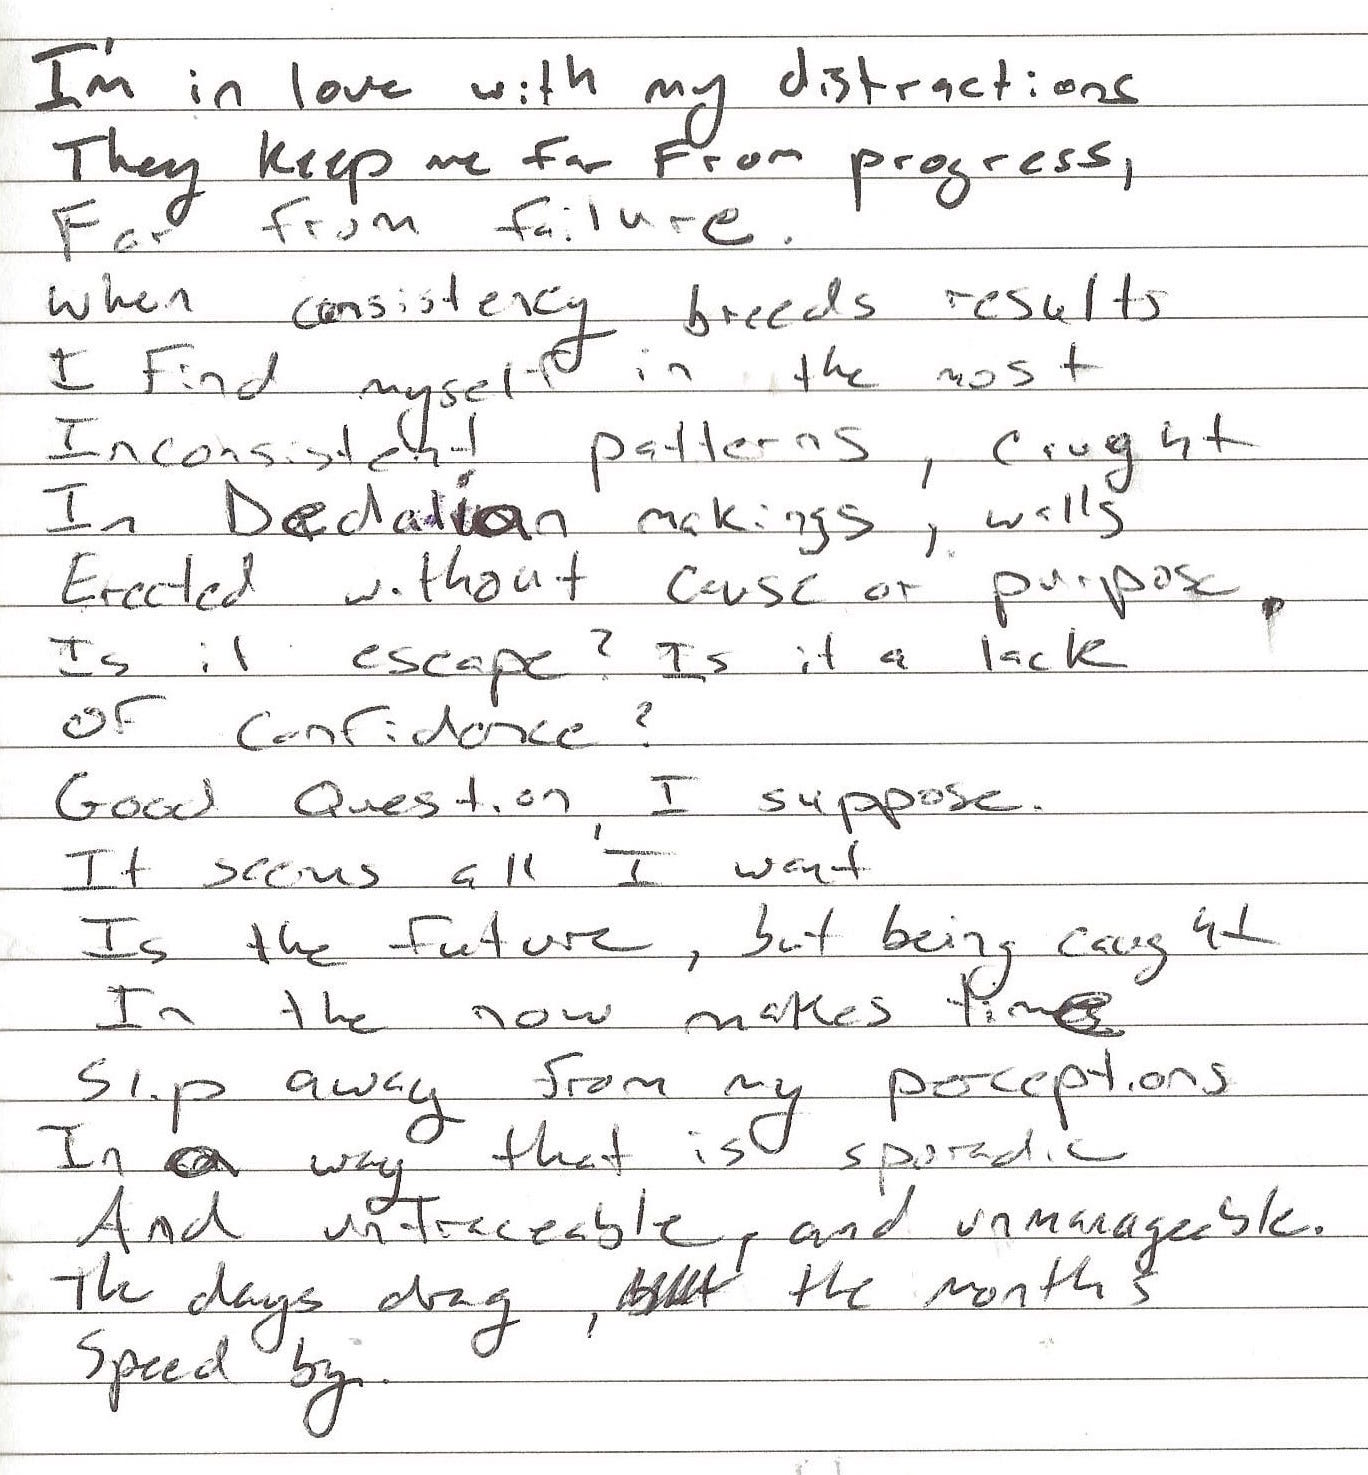 I'm in love with my distractions
They keep me far From progress,
Far from failure.
when consistency breeds results
I Find myself in the most
Inconsistent patterns, caught
In Dedalian makings, walls
Erected without cause or purpose.
Is it escape? Is it a lack
OF confidance?
Good Question, I suppose.
It seems all I want
Is the future, but being caught
In the now makes time
Slip away from my perceptions
In a way that is sporadic
And untraceable, and unmanageable.
The days drag, the months
Speed by.